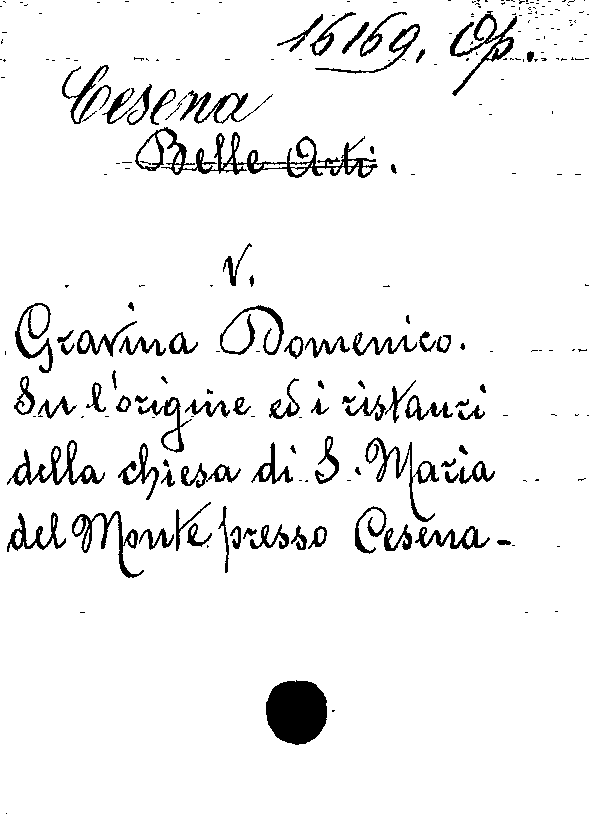 16169. Op.
Cesena
Belle Arti.
V.
Gravina Domenico.
Su l'origine ed i ristauri
della chiesa di S. Maria
del Monte presso Cesena-